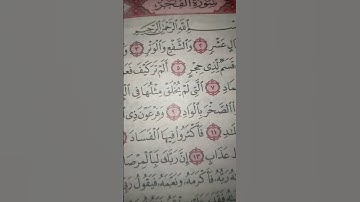 سُورَةُ الفَجْرِ
ٱللَّهِ ٱلرَّحْمَٰنِ ٱلرَّحِيمِ
لٍ عَشْرٍ ٢ وَٱلشَّفْعِ وَٱلْوَتْرِ ٣
قَسَمٌ لِّذِى حِجْرٍ ٥ أَلَمْ تَرَ كَيْفَ فَعَ
مَادِ ٧ ٱلَّتِى لَمْ يُخْلَقْ مِثْلُهَا فِى
ٱلصَّخْرَ بِٱلْوَادِ ٩ وَفِرْعَوْنَ ذِى
لَٰدِ ١١ فَأَكْثَرُوا۟ فِيهَا ٱلْفَسَادَ
عَذَابٍ ١٣ إِنَّ رَبَّكَ لَبِٱلْمِرْصَا
رَبُّهُۥ فَأَكْرَمَهُۥ وَنَعَّمَهُۥ فَيَقُولُ